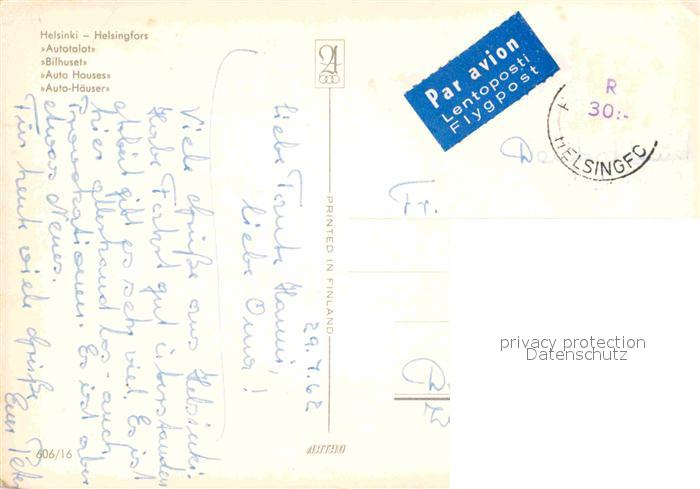 Helsinki – Helsingfors
»Autotalot»
»Bilhuset»
»Auto Houses»
»Auto-Häuser»
Par avion
Lentoposti
Flygpost
R
30:-
HELSINGFO
PRINTED IN FINLAND
29.7.62
Liebe Tante Hanni,
liebe Oma!
Viele Grüße aus Helsinki.
Habe Fahrt gut überstanden
gibt es sehr viel. Es ist
hier allerhand los - auch
Provokationen. Es ist aber
etwas Neues.
Für heute viele Grüße
Euer Peter
606/16
privacy protection
Datenschutz